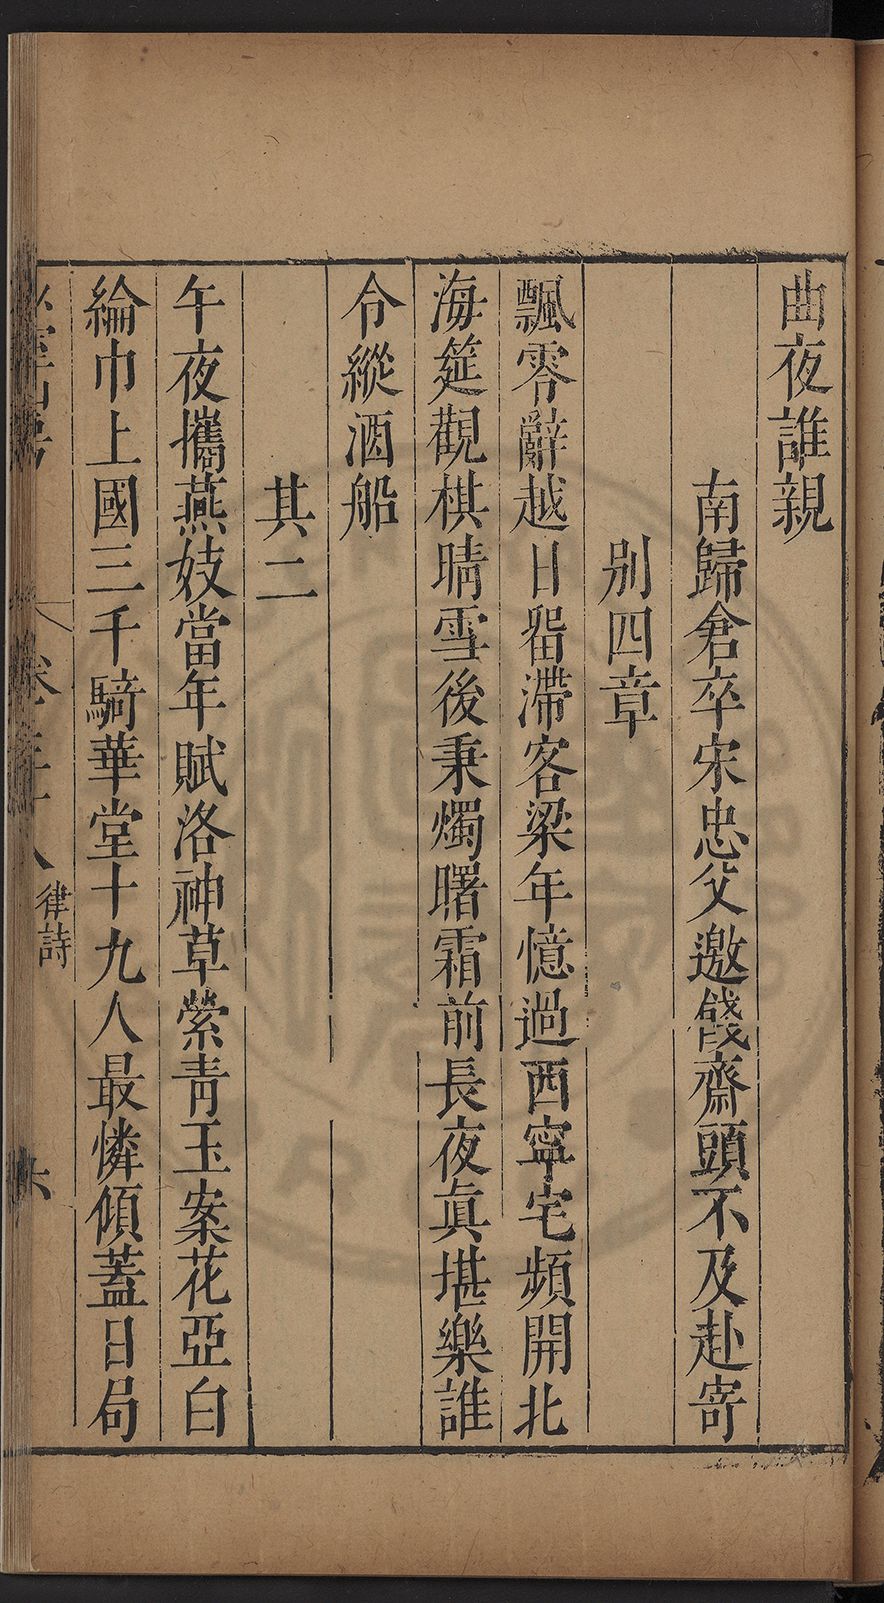 曲夜誰親
南歸倉卒宋忠父邀餞齋頭不及赴寄
别四章
飄零辭越日畱滯客梁年憶過西寧宅頻開北
海筵觀棋晴雪後秉燭曙霜前長夜眞堪樂誰
令縱酒船
其二
午夜攜燕妓當年賦洛神草縈青玉案花亞白
綸巾上國三千騎華堂十九人最憐傾蓋日局
律詩